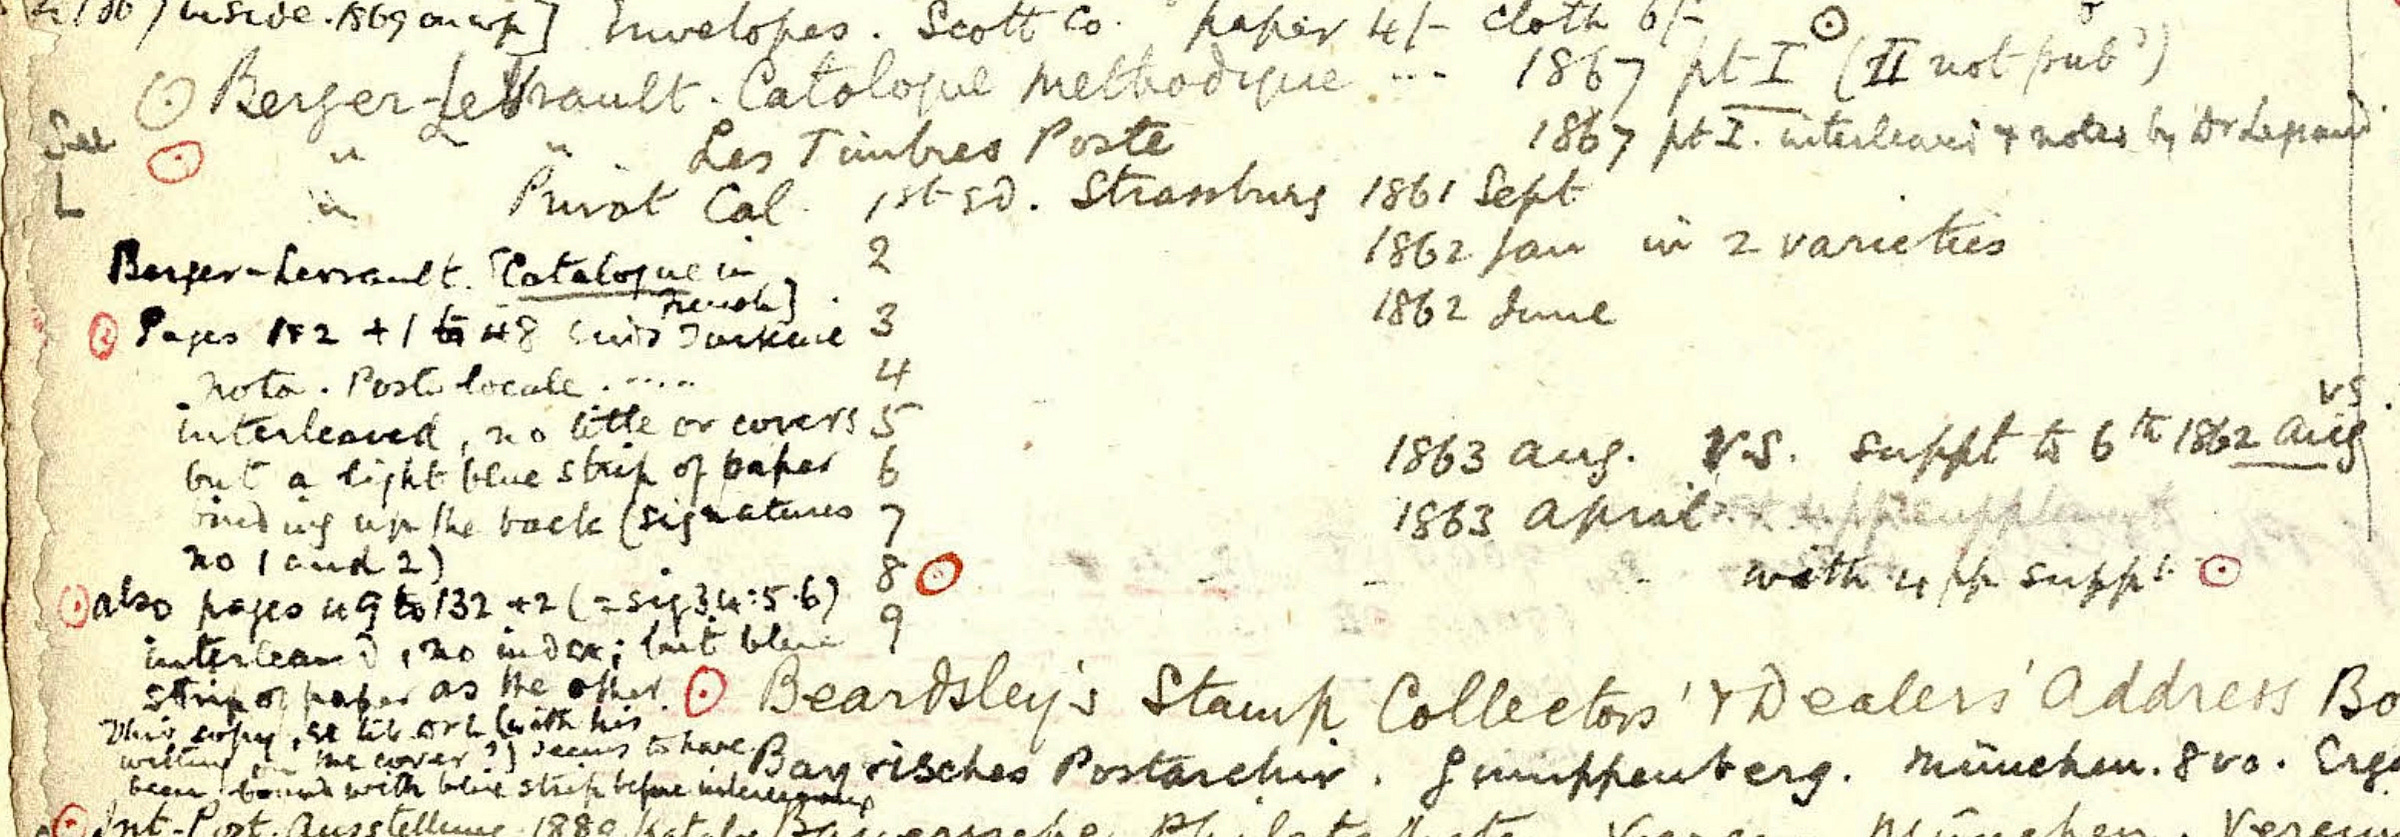 inside. 1869 on wp] Envelopes. Scott Co. paper 4/- cloth 6/-
Berger-Levrault. Catalogue Methodique ... 1867 pt I (II not pubd)
See " " Les Timbres Poste 1867 pt I. interleaved & notes by Dr Legrand
L " Privat Cal. 1st Ed. Strassburg 1861 Sept
2 1862 Jan in 2 varieties
3 1862 June
4
5 vs.
6 1863 Aug. V.S. suppt to 6th 1862 Aug
7 1863 April
8 - - - with 4 pp suppt.
9
Berger-Levrault. [Catalogue in
French]
Pages 1+2 + 1 to 48 ends Turkie
nota. Poste locale.....
interleaved, no title or covers
but a light blue strip of paper
binding up the back (signatures
no 1 and 2)
also pages 49 to 132 + 2 (= sig 3.4:5.6)
interleaved, no index; but blue
strip of paper as the other.
This copy, (with his
writing on the cover?) seems to have
been bound with blue strip before interleaving
Beardsley's Stamp Collectors' & Dealers' Address Bo
Bayrisches Postarchiv. Gumppenberg. München. 8vo. Erga
Int-Post. Ausstellung. 188 Katalo Philat München. Verein